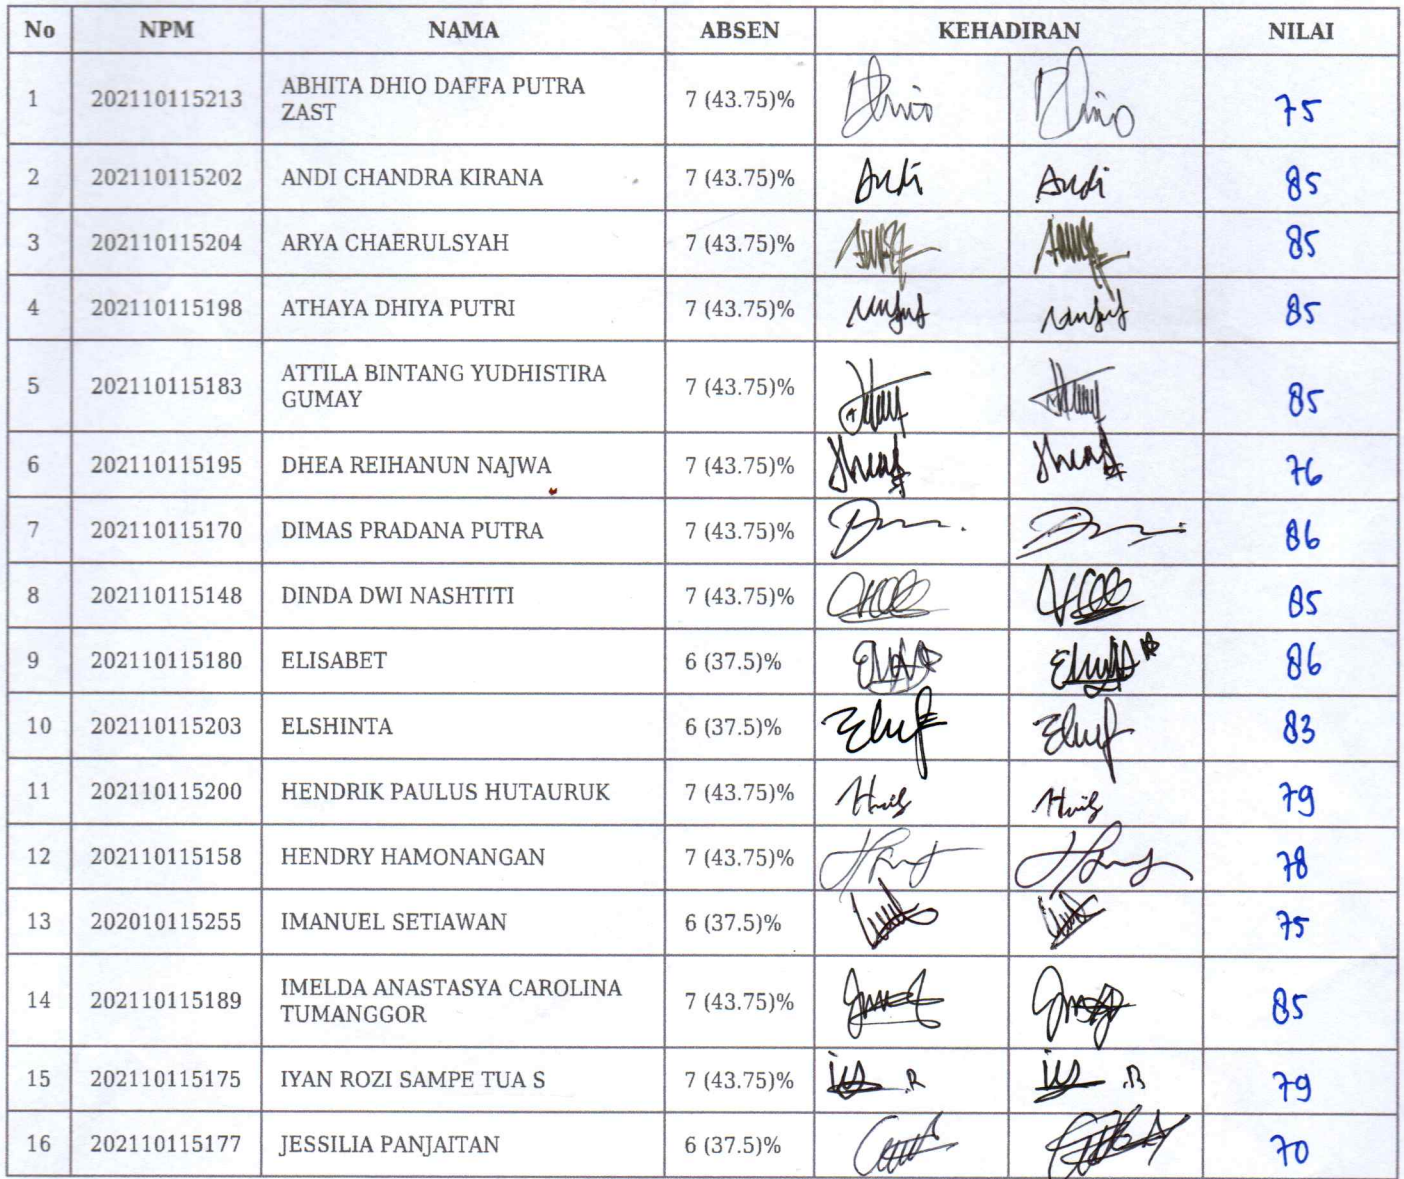 No NPM NAMA ABSEN KEHADIRAN NILAI
1 202110115213 ABHITA DHIO DAFFA PUTRA ZAST 7 (43.75)% Dhio Dhio 75
2 202110115202 ANDI CHANDRA KIRANA 7 (43.75)% Andi Andi 85
3 202110115204 ARYA CHAERULSYAH 7 (43.75)% 85
4 202110115198 ATHAYA DHIYA PUTRI 7 (43.75)% 85
5 202110115183 ATTILA BINTANG YUDHISTIRA GUMAY 7 (43.75)% 85
6 202110115195 DHEA REIHANUN NAJWA 7 (43.75)% 76
7 202110115170 DIMAS PRADANA PUTRA 7 (43.75)% 86
8 202110115148 DINDA DWI NASHTITI 7 (43.75)% 85
9 202110115180 ELISABET 6 (37.5)% 86
10 202110115203 ELSHINTA 6 (37.5)% 83
11 202110115200 HENDRIK PAULUS HUTAURUK 7 (43.75)% 79
12 202110115158 HENDRY HAMONANGAN 7 (43.75)% 78
13 202010115255 IMANUEL SETIAWAN 6 (37.5)% 75
14 202110115189 IMELDA ANASTASYA CAROLINA TUMANGGOR 7 (43.75)% 85
15 202110115175 IYAN ROZI SAMPE TUA S 7 (43.75)% 79
16 202110115177 JESSILIA PANJAITAN 6 (37.5)% 70